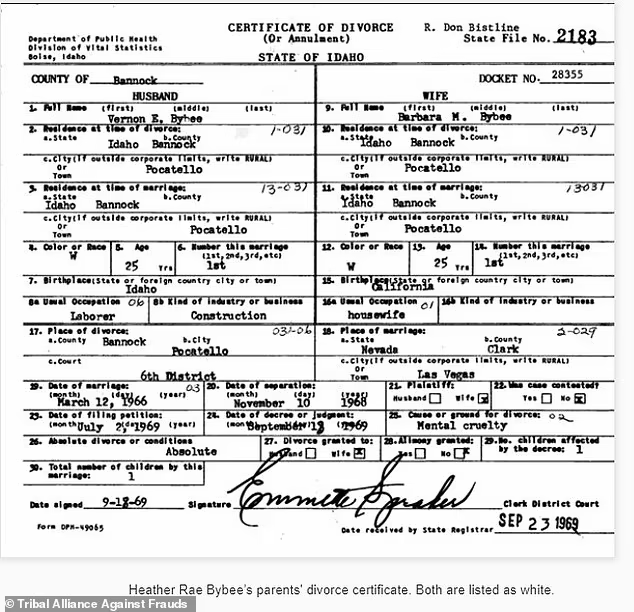 CERTIFICATE OF DIVORCE
(Or Annulment)
STATE OF IDAHO
Department of Public Health
Division of Vital Statistics
Boise, Idaho
R. Don Bistline
State File No. 2183
COUNTY OF Bannock
DOCKET NO. 28355
HUSBAND
WIFE
1. Full Name (first) (middle) (last)
Vernon E. Bybee
9. Full Name (first) (middle) (last)
Barbara M. Bybee
2. Residence at time of divorce: 1-031
a. State b. County
Idaho Bannock
10. Residence at time of divorce: 1-031
a. State b. County
Idaho Bannock
c. City(If outside corporate limits, write RURAL)
Or
Town Pocatello
c. City(If outside corporate limits, write RURAL)
Or
Town Pocatello
3. Residence at time of marriage: 13-031
a. State b. County
Idaho Bannock
11. Residence at time of marriage: 13031
a. State b. County
Idaho Bannock
c. City(If outside corporate limits, write RURAL)
Or
Town Pocatello
c. City(If outside corporate limits, write RURAL)
Or
Town Pocatello
4. Color or Race
W
5. Age
25 Yrs
6. Number this marriage
(1st, 2nd, 3rd, etc)
1st
12. Color or Race
W
13. Age
25 Yrs
14. Number this marriage
(1st, 2nd, 3rd, etc)
1st
7. Birthplace(State or foreign country city or town)
Idaho
15. Birthplace(State or foreign country city or town)
California
8a Usual Occupation 06
Laborer
8b Kind of industry or business
Construction
16a Usual Occupation 01
housewife
16b Kind of industry or business
17. Place of divorce: 031-06
a. County Bannock b. City
Pocatello
18. Place of marriage: 2-029
a. State b. County
Nevada Clark
c. Court
6th District
c. City(If outside corporate limits, write RURAL)
Or
Town Las Vegas
19. Date of marriage: 03
(month) (day) (year)
March 12, 1966
20. Date of separation:
(month) (day) (year)
November 10 1968
21. Plaintiff:
Husband Wife
22. Was case contested?
Yes No
23. Date of filing petition:
(month) (day) (year)
July 1969
24. Date of decree or judgment:
(month) (day) (year)
September 1969
25. Cause or ground for divorce: 02
Mental cruelty
26. Absolute divorce or conditions
Absolute
27. Divorce granted to:
Husband Wife
28. Alimony granted:
Yes No
29. No. children affected
by the decree: 1
30. Total number of children by this
marriage: 1
Date signed 9-18-69 Signature Clerk District Court
Form DPH-49065
Date received by State Registrar SEP 23 1969
© Tribal Alliance Against Frauds
Heather Rae Bybee's parents' divorce certificate. Both are listed as white.